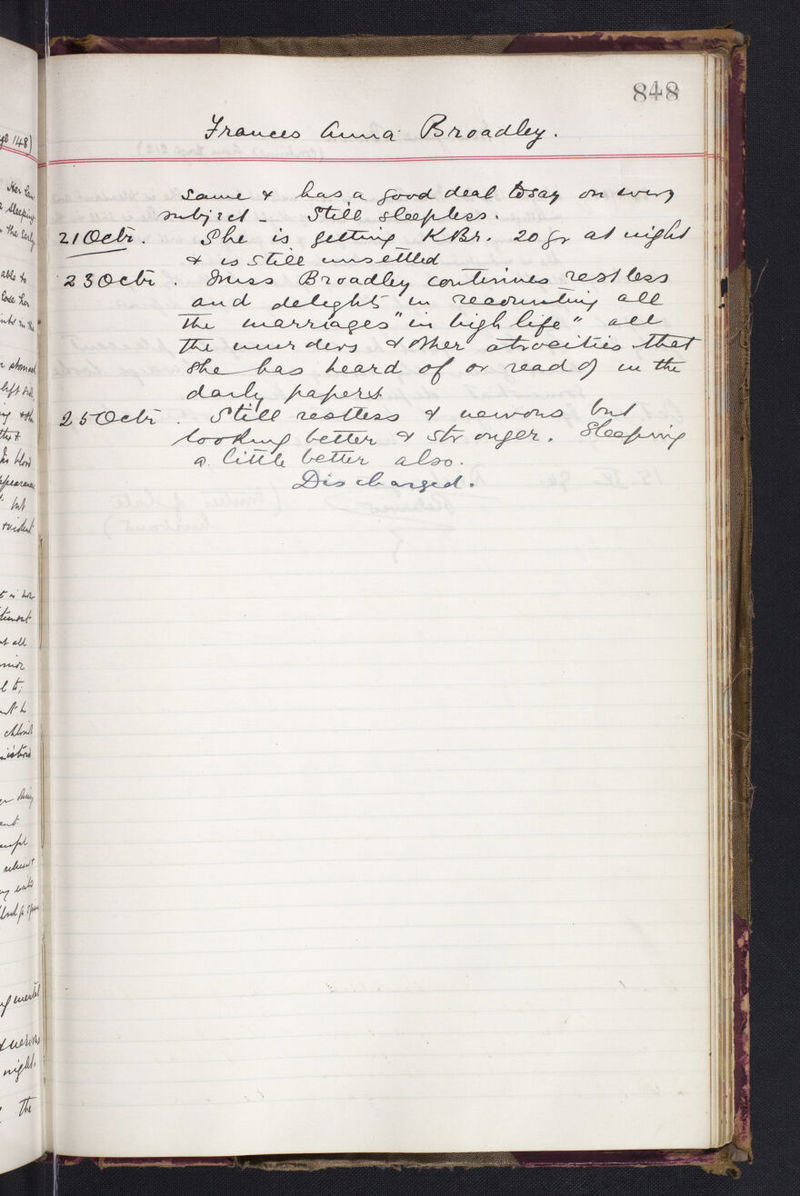 848
Frances Anna Broadley.
same & has a good deal to say on every
subject - Still sleepless.
21 Octr. She is getting KBr. 20 gr at night
& is still unsettled
23 Octr. Miss Broadley continues restless
and delights in recounting all
the marriages "in high life" all
the murders & other atrocities that
she has heard of or read of in the
daily papers
25 Octr. Still restless & nervous but
looking better & stronger. Sleeping
a little better also.
Discharged.